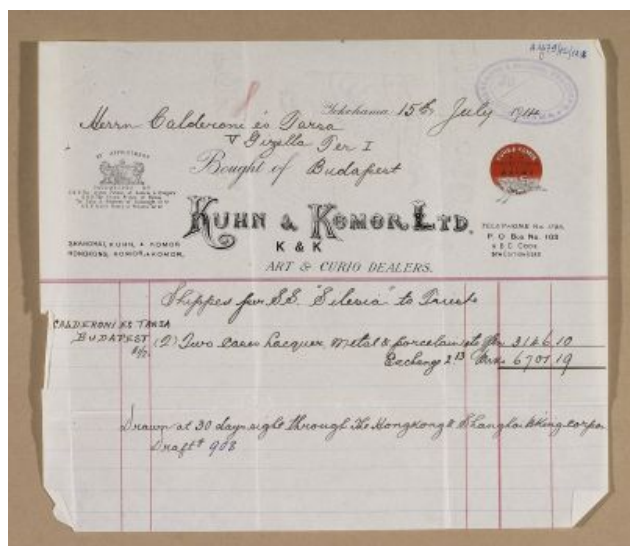 Yokohama 15th July 1914
Herrn Calderoni és Tarsa
V Gizella Ter I
Bought of Budapest
BY APPOINTMENT
KUHN & KOMOR LTD.
K & K
ART & CURIO DEALERS.
SHANGHAI, KUHN, & KOMOR
HONGKONG, KOMOR & KOMOR,
TELEPHONE No.
P. O. Box No. 103
A B C Code
5TH EDITION USED
Shipped per S.S. "Silesia" to Triest
CALDERONI ES TARSA
BUDAPEST (2) Two cases Lacquer, Metal & porcelain etc Yen 3146.10
Exchange 2.13 Mrk. 6701.19
Drawn at 30 days sight through The Hongkong & Shanghai Bking corpon
Draft # 903